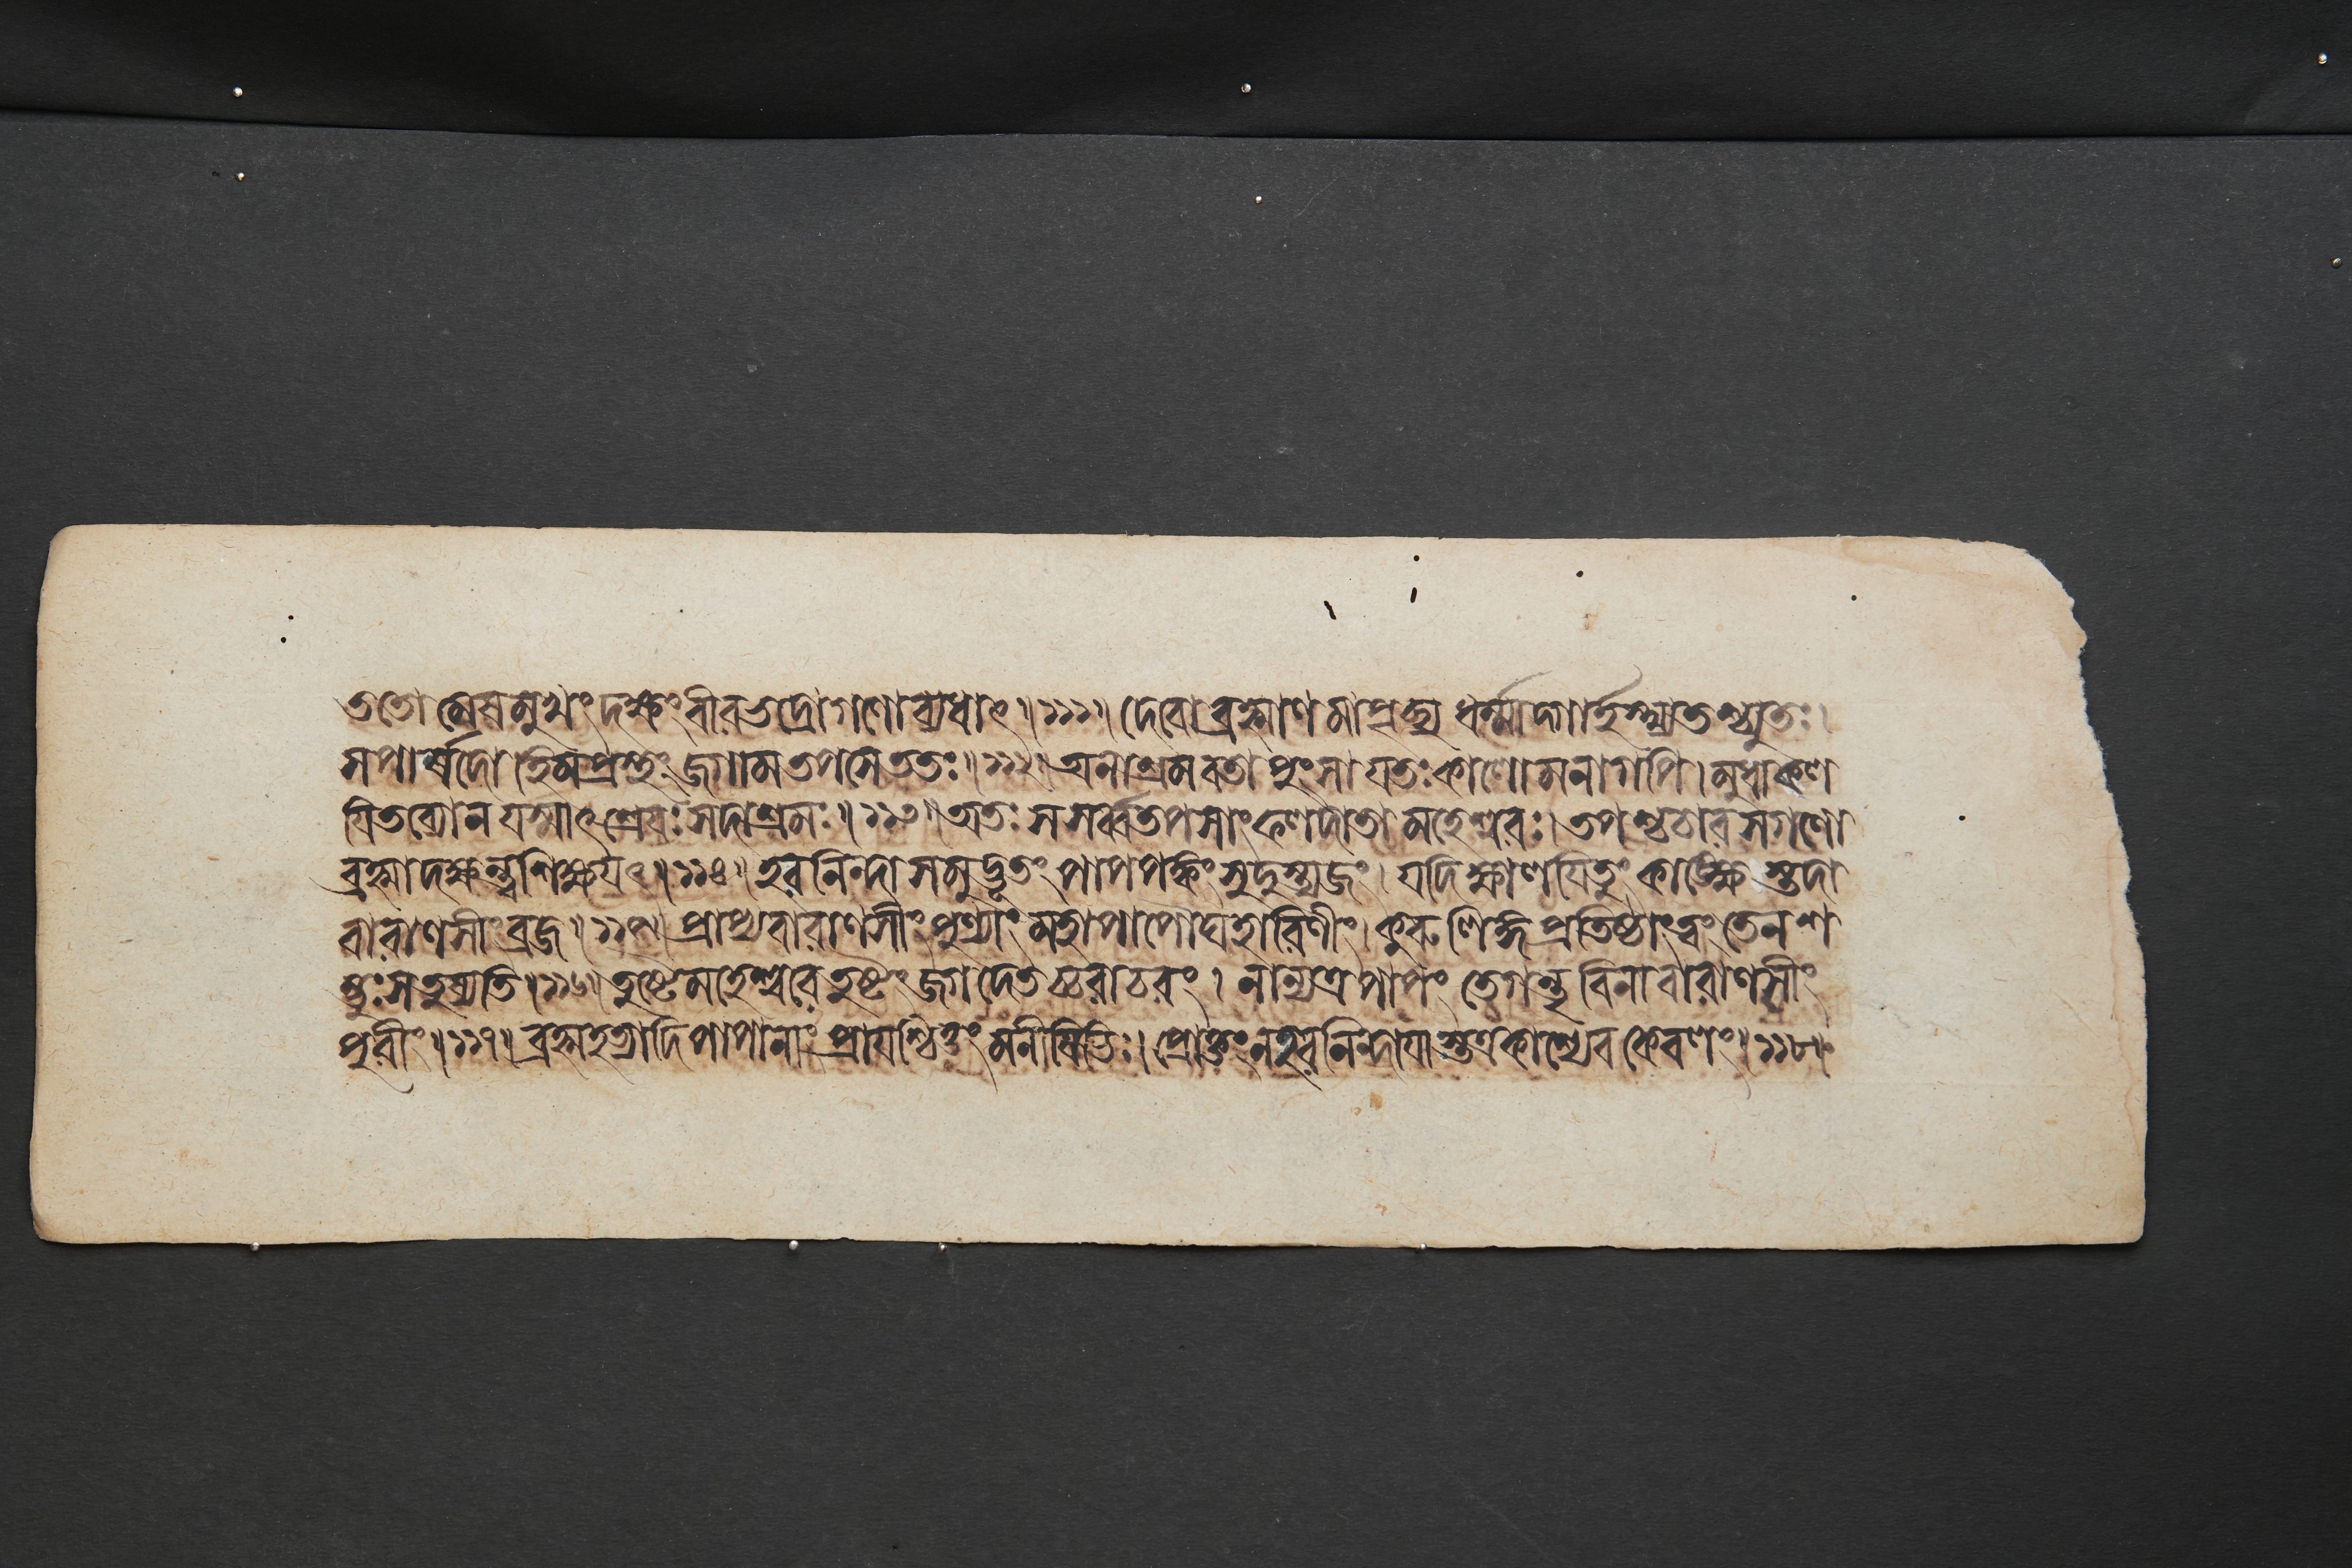 ততো মেষমুখং দক্ষং বীরভদ্রো গণো ব্যধাৎ ॥১১১॥ দেবো ব্রহ্মাণমাপৃচ্ছ্য ধর্ম্মাদ্গার্হস্থ্যতশ্চ্যুতঃ।
সপার্ষদো হিমপ্রস্থং জগাম তপসে ততঃ ॥১১২॥ অনাশ্রমবতা পুংসা যতঃ কালো মনাগপি। মুধা কল
যিতব্যো ন যস্মাৎ শ্রেযঃ সদাশ্রমঃ ॥১১৩॥ অতঃ স সর্ব্বতপসাং ফলদাতা মহেশ্বরঃ। তপশ্চচার সগণো
ব্রহ্মা দক্ষন্ত্বশিক্ষযৎ ॥১১৪॥ হরনিন্দাসমুদ্ভূতং পাপপঙ্কং সুদুস্ত্যজং। যদি ক্ষালযিতুং কাঙ্ক্ষেস্তদা
বারাণসীং ব্রজ ॥১১৫॥ প্রাপ্য বারাণসীং পুণ্যাং মহাপাপৌঘহারিণীং। কুরু লিঙ্গপ্রতিষ্ঠাং ত্বং তেন শ
ম্ভুঃ স তুষ্যতি ॥১১৬॥ তুষ্টে মহেশ্বরে তুষ্টং জগদেতচ্চরাচরং। নান্যত্র পাপং তে গন্তৃ বিনা বারাণসীং
পুরীং ॥১১৭॥ ব্রহ্মহত্যাদিপাপানাং প্রাযশ্চিত্তং মনীষিভিঃ। প্রোক্তং ন হরনিন্দাযাস্তত্র কাশ্যেব কেবলং ॥১১৮॥